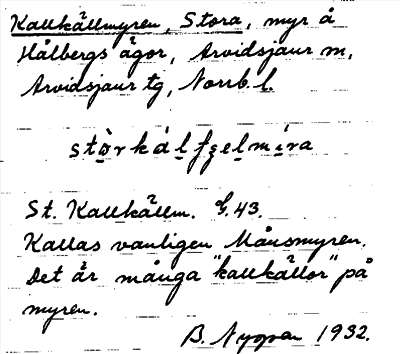 Kallkällmyren, Stora, myr å
Hålbergs ägor, Arvidsjaur sn,
Arvidsjaur tg, Norrb. l.
St. Kallkällm. G. 43.
Kallas vanligen Månsmyren.
Det är många "kallkällor" på
myren.
B. Nygren 1932.